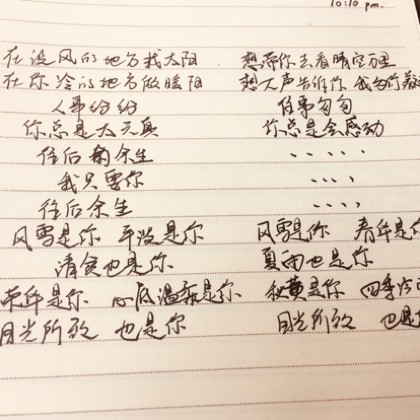 10:10 pm.
在没风的地方找太阳 想带你去看晴空万里
在你冷的地方做暖阳 想大声告诉你 我为你着
人事纷纷 往事匆匆
你总是太天真 你总是会感动
往后的余生 ......
我只要你 ....,
往后余生 ....,
风雪是你 平淡是你 风雪是你 春华是你
清贫也是你 夏雨也是你
荣华是你 心底温柔是你 秋黄是你 四季冷
目光所致 也是你 目光所致 也是